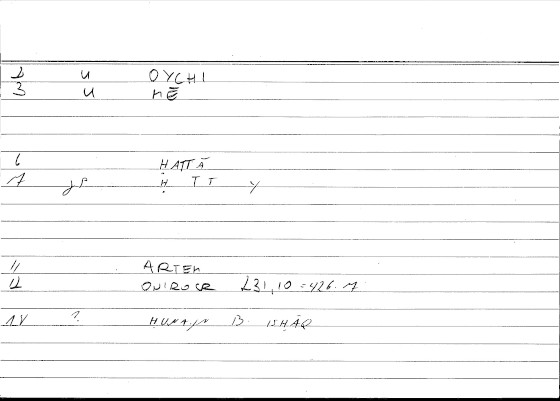 2 u OYCHI
3 u MĒ
6 ḤATTĀ
7 jp Ḥ T T Y
11 ARTEM
12 ONIROCR 231,10 = 426.7
14 ? ḤUNAYN B. ISḤĀQ